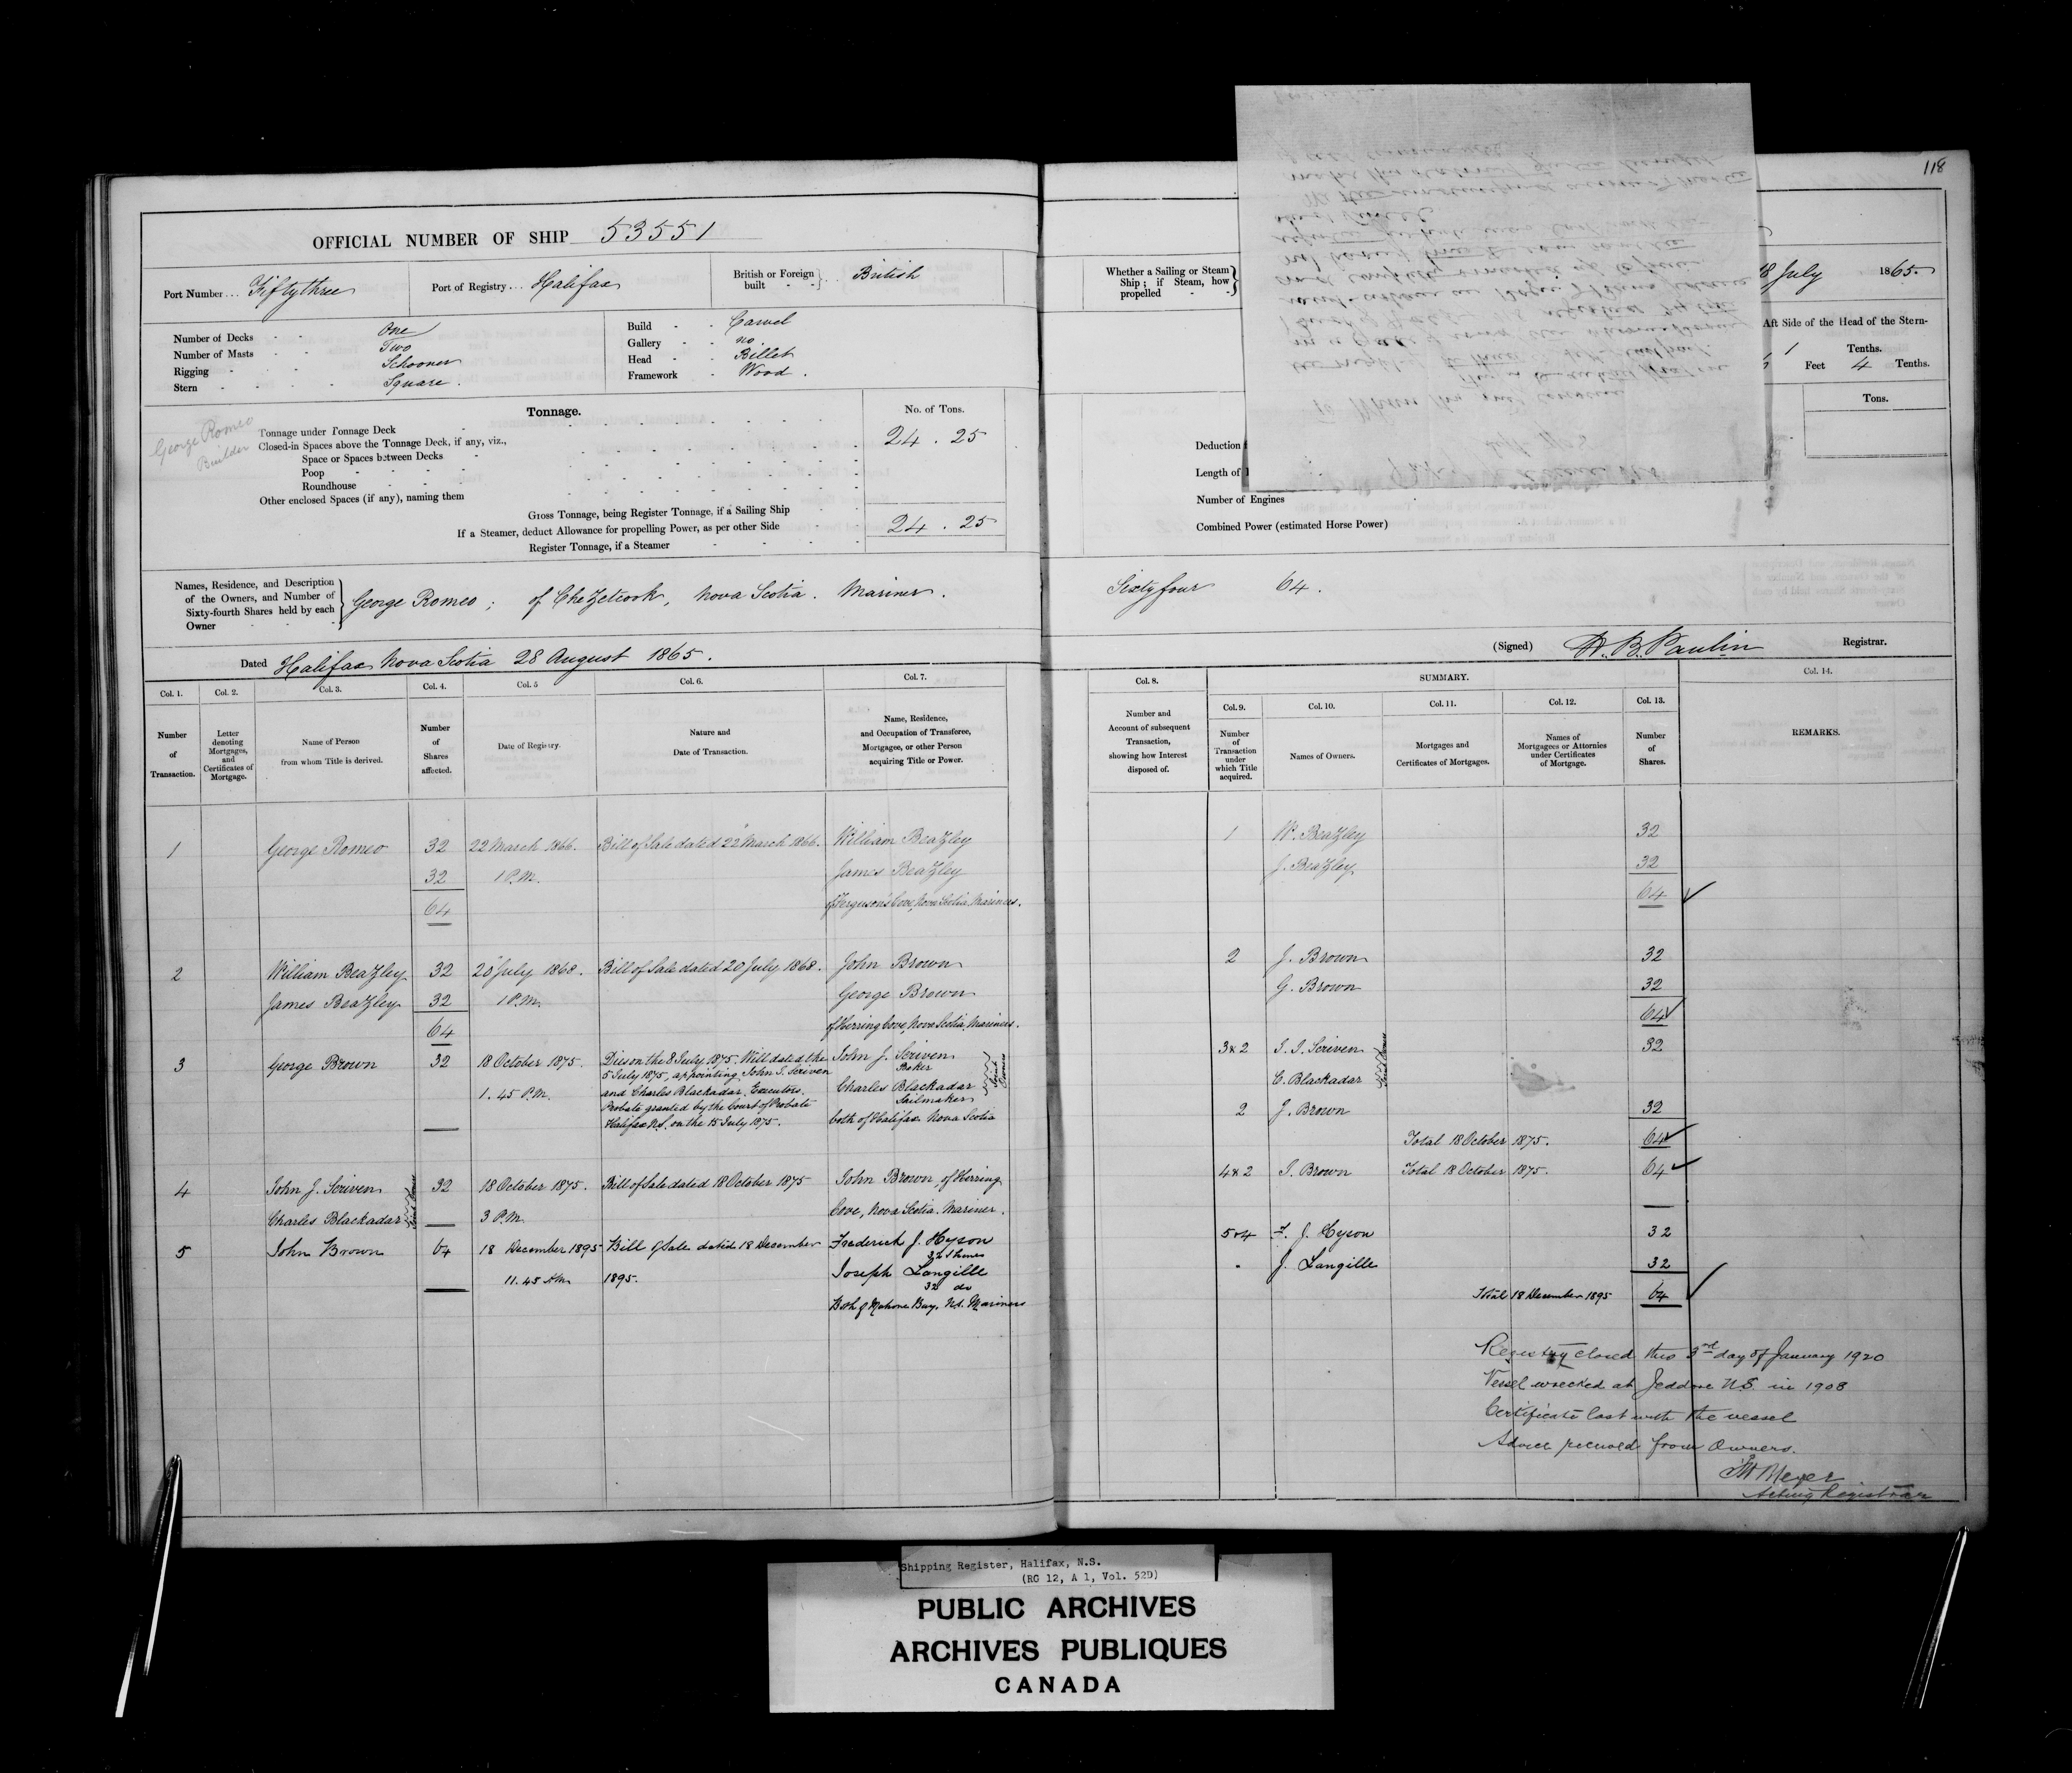 118
OFFICIAL NUMBER OF SHIP 53551
Port Number... Fiftythree
Port of Registry... Halifax
British or Foreign built } British
Number of Decks - - One
Number of Masts - - Two
Rigging - - - Schooner
Stern - - - - Square.
Build - - Carvel
Gallery - - no.
Head - - Billet
Framework - Wood.
George Romeo
Builder
Tonnage.
No. of Tons.
Tonnage under Tonnage Deck
24 . 25
Closed-in Spaces above the Tonnage Deck, if any, viz.,
Space or Spaces between Decks
Poop
Roundhouse
Other enclosed Spaces (if any), naming them
Gross Tonnage, being Register Tonnage, if a Sailing Ship
24 . 25
If a Steamer, deduct Allowance for propelling Power, as per other Side
Register Tonnage, if a Steamer
Names, Residence, and Description
of the Owners, and Number of
Sixty-fourth Shares held by each
Owner
George Romeo; of Chezetcook, Nova Scotia. Mariner.
Dated Halifax Nova Scotia 28 August 1865.
Col. 1. Col. 2. Col. 3. Col. 4. Col. 5 Col. 6. Col. 7.
Number of Transaction.
Letter denoting Mortgages, and Certificates of Mortgage.
Name of Person from whom Title is derived.
Number of Shares affected.
Date of Registry.
Nature and Date of Transaction.
Name, Residence, and Occupation of Transferee, Mortgagee, or other Person acquiring Title or Power.
1 George Romeo 32 22 March 1866. Bill of Sale dated 22 March 1866. William Beazley
32 1 P.M. James Beazley
64 of Ferguson's Cove, Nova Scotia Mariners.
2 William Beazley 32 20 July 1868. Bill of Sale dated 20 July 1868. John Brown
James Beazley 32 1 P.M. George Brown
64 of Herring Cove, Nova Scotia, Mariners.
3 George Brown 32 18 October 1875. Dies on the 8 July 1875. Will dated the John J. Scriven
5 July 1875, appointing John S. Scriven Baker
1.45 P.M. and Charles Blackadar, Executors. Charles Blackadar
Probate granted by the Court of Probate Sailmaker
Halifax N.S. on the 15 July 1875. both of Halifax Nova Scotia
Joint Owners
4 John J. Scriven 32 18 October 1875. Bill of Sale dated 18 October 1875 John Brown, of Herring
Charles Blackadar 3 P.M. Cove, Nova Scotia. Mariner.
Joint Owners
5 John Brown 64 18 December 1895 Bill of Sale dated 18 December Frederick J. Hyson
32 Shares
11.45 AM 1895. Joseph Langille
32 do
Both of Mahone Bay, N.S. Mariners
Whether a Sailing or Steam
Ship; if Steam, how
propelled -
18 July 1865.
Aft Side of the Head of the Stern-
1 Tenths.
Feet 4 Tenths.
Tons.
Deduction
Length of
Number of Engines
Combined Power (estimated Horse Power)
Sixty four 64.
(Signed) H. B. Paulin Registrar.
Col. 8. SUMMARY. Col. 14.
Col. 9. Col. 10. Col. 11. Col. 12. Col. 13.
Number and Account of subsequent Transaction, showing how Interest disposed of.
Number of Transaction under which Title acquired.
Names of Owners.
Mortgages and Certificates of Mortgages.
Names of Mortgagees or Attornies under Certificates of Mortgage.
Number of Shares.
REMARKS.
1 W. Beazley 32
J. Beazley 32
64
2 J. Brown 32
G. Brown 32
64
3 & 2 J. J. Scriven 32
C. Blackadar
Joint Owners
2 J. Brown 32
Total 18 October 1875. 64
4 & 2 J. Brown Total 18 October 1875. 64
5 & 4 F. J. Hyson 32
" J. Langille 32
Total 18 December 1895 64
Registry closed this 3rd day of January 1920
Vessel wrecked at Jeddore N.S. in 1908
Certificate lost with the vessel
Advice received from Owners.
Meyer
Acting Registrar
Shipping Register, Halifax, N.S.
(RG 12, A 1, Vol. 52D)
PUBLIC ARCHIVES
ARCHIVES PUBLIQUES
CANADA